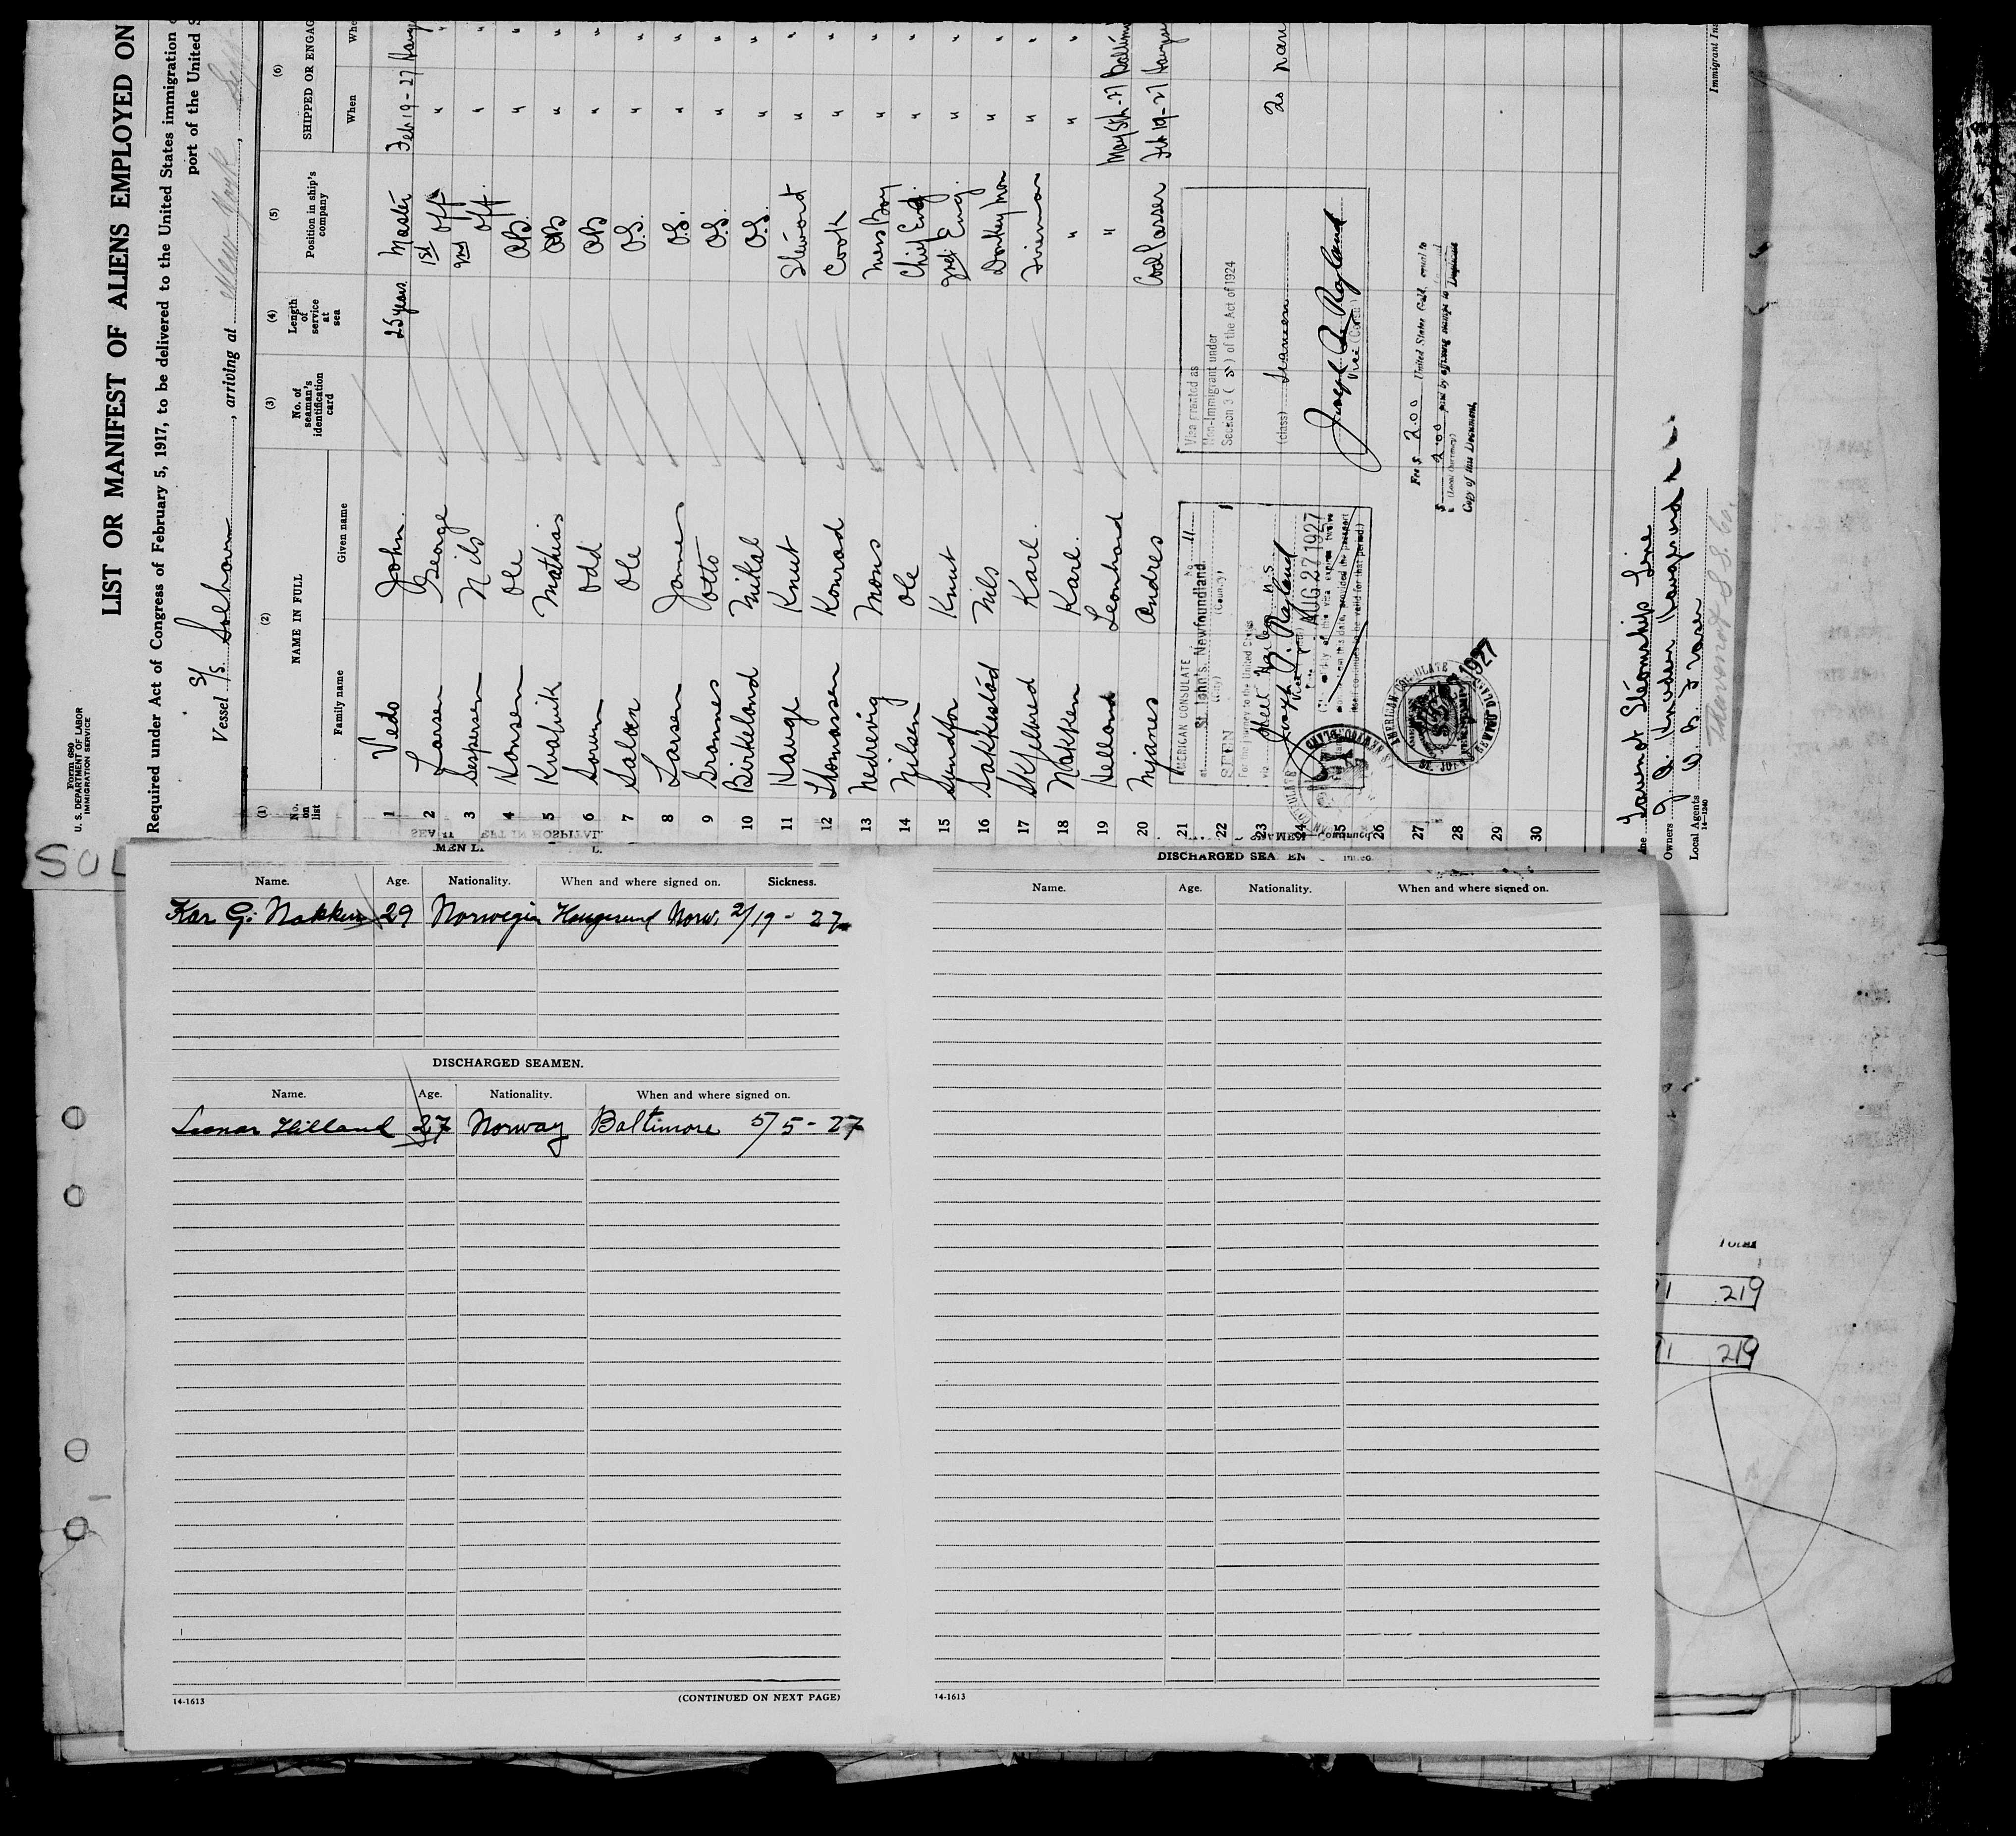 Form 680
U. S. DEPARTMENT OF LABOR
IMMIGRATION SERVICE
LIST OR MANIFEST OF ALIENS EMPLOYED ON
Required under Act of Congress of February 5, 1917, to be delivered to the United States immigration
port of the United S
Vessel S/S Solhavn, arriving at New York,
(1) (2) (3) (4) (5) (6)
No. on list NAME IN FULL No. of seaman's identification card Length of service at sea Position in ship's company SHIPPED OR ENGAG
Family name Given name When Whe
1 Vedo John 25 years Master Feb 19-27 Hauge
2 Larsen George 1st off. " "
3 Jespersen Nils 2nd off. " "
4 Hansen Ole AB. " "
5 Knapvik Mathias AB " "
6 Sorum Odd AB " "
7 Salven Ole O.S. " "
8 Larsen Johannes O.S. " "
9 Grannes Otto O.S. " "
10 Birkeland Mikal O.S. " "
11 Hauge Knut Steward " "
12 Thomassen Konrad Cook " "
13 Nedrevig Mons Mess Boy " "
14 Nilsen Ole Chief Eng. " "
15 Sundfor Knut 2nd Eng. " "
16 Sakkestad Nils Donkeyman " "
17 Skjelbred Karl. Fireman " "
18 Nakken Karl. " " "
19 Helland Leonhard " May 5th-27 Baltim
20 Mjanes Andres Coal Passer Feb 19-27 Hauge
21
22
23
24
25
26
27
28
29
30
AMERICAN CONSULATE
at St. John's, Newfoundland.
(City) (Country)
SEEN
For the journey to the United States
via
Joseph P. Ragland
AUG 27 1927
Visa granted as
Non-Immigrant under
Section 3 (5) of the Act of 1924
(class) Seamen
Joseph P. Ragland
Vice Consul
Fee $ 2.00 United States Gold, equal to
$ 2.00 paid by affixing stamps to Duplicate
(Local Currency)
Copy of this Document.
AMERICAN CONSULATE
ST. JOHN'S NEWFOUNDLAND
1927
Steamship Line
Owners J. A. Knudsen Haugesund
Local Agents W. B. Fraser
14-1240
Thormond S.S. Co.
Immigrant Ins
SOL
Name. Age. Nationality. When and where signed on. Sickness.
Kar G. Nakken 29 Norwegin Haugesund Norw. 2/19-27
DISCHARGED SEAMEN.
Name. Age. Nationality. When and where signed on.
Leonar Hilland 27 Norway Baltimore 5/5-27
14-1613 (CONTINUED ON NEXT PAGE)
DISCHARGED SEAMEN
Name. Age. Nationality. When and where signed on.
14-1613
Total
219
219